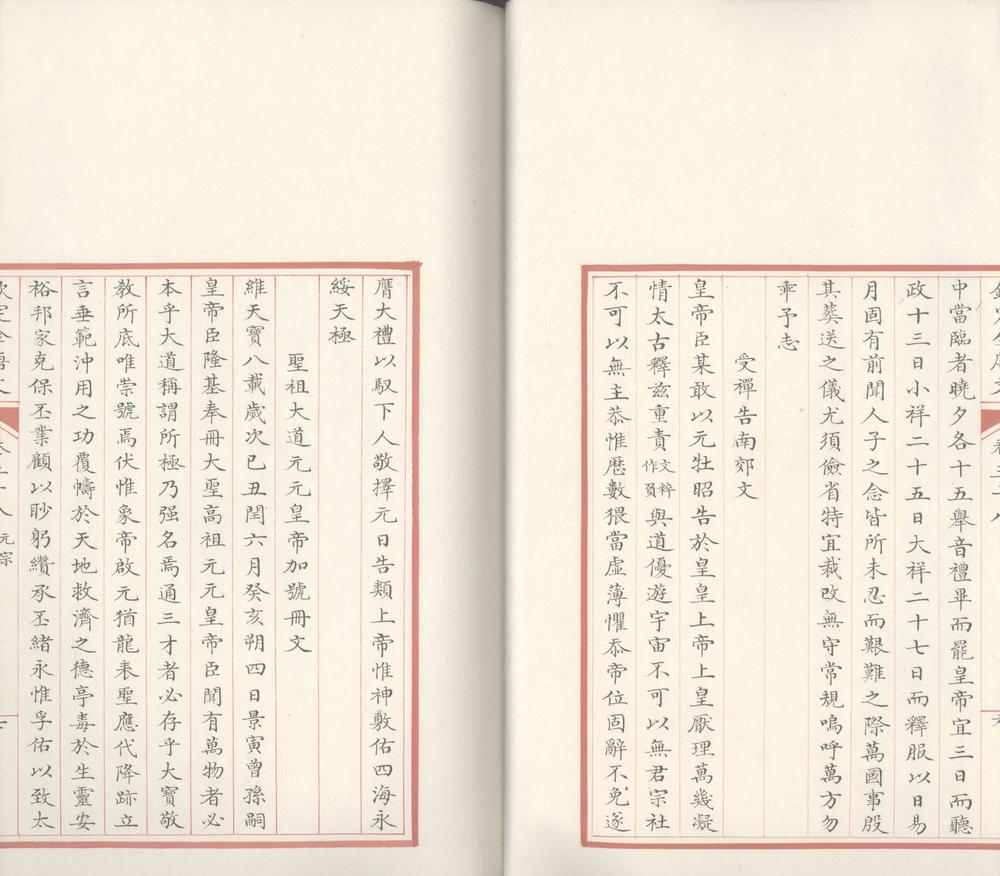 中當臨者曉夕各十五舉音禮畢而罷皇帝宜三日而聽
政十三日小祥二十五日大祥二十七日而釋服以日易
月固有前聞人子之念皆所未忍而艱難之際萬國事殷
其葬送之儀尤須儉省特宜裁改無守常規嗚呼萬方勿
乖予志
受禪告南郊文
皇帝臣某敢以元牡昭告於皇皇上帝上皇厭理萬幾凝
情太古釋茲重責文粹作負與道優遊宇宙不可以無君宗社
不可以無主恭惟厯數猥當虛薄懼忝帝位固辭不免遂
膺大禮以馭下人敬擇元日告類上帝惟神敷佑四海永
綏天極
聖祖大道元元皇帝加號冊文
維天寶八載歲次己丑閏六月癸亥朔四日景寅曾孫嗣
皇帝臣隆基奉冊大聖高祖元元皇帝臣聞有萬物者必
本乎大道稱謂所極乃强名焉通三才者必存乎大寶敬
教所底唯崇號焉伏惟象帝啟元猶龍表聖應代降跡立
言垂範沖用之功覆幬於天地救濟之德亭毒於生靈安
裕邦家克保丕業顧以眇躬纘承丕緒永惟孚佑以致太
元宗